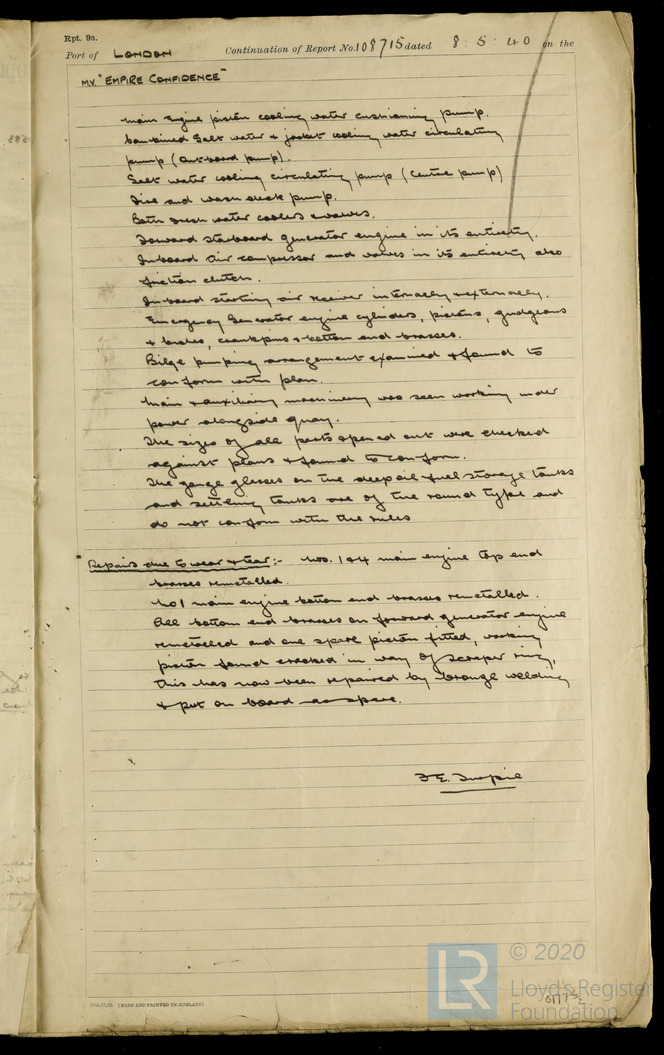 Rpt. 9a.
Port of LONDON Continuation of Report No. 108715 dated 8 : 5 : 40 on the
M.V. "EMPIRE CONFIDENCE"
Main Engine piston cooling water cushioning pump.
Combined Salt water & jacket cooling water circulating
pump (outboard pump).
Salt water cooling circulating pump (centre pump)
Fire and wash deck pump.
Both fresh water coolers & valves.
Forward starboard generator engine in its entirety.
Inboard air compressor and valves in its entirety also
friction clutch.
Inboard starting air receiver internally & externally.
Emergency Generator engine cylinders, pistons, gudgeons
& bushes, crankpins & bottom end brasses.
Bilge pumping arrangement examined & found to
conform with plan.
Main & auxiliary machinery was seen working under
power alongside quay.
The sizes of all parts opened out were checked
against plans & found to conform.
The gauge glasses on the deep oil fuel storage tanks
and settling tanks are of the round type and
do not conform with the rules
Repairs due to wear & tear:- Nos. 1 & 4 main engine top end
brasses remetalled.
No 1 main engine bottom end brasses remetalled.
All bottom end brasses on forward generator engine
remetalled and one spare piston fitted, working
piston found cracked in way of scraper ring,
this has now been repaired by bronze welding
& put on board as spare.
(MADE AND PRINTED IN ENGLAND)
LR
© 2020
Lloyd's Register
Foundation